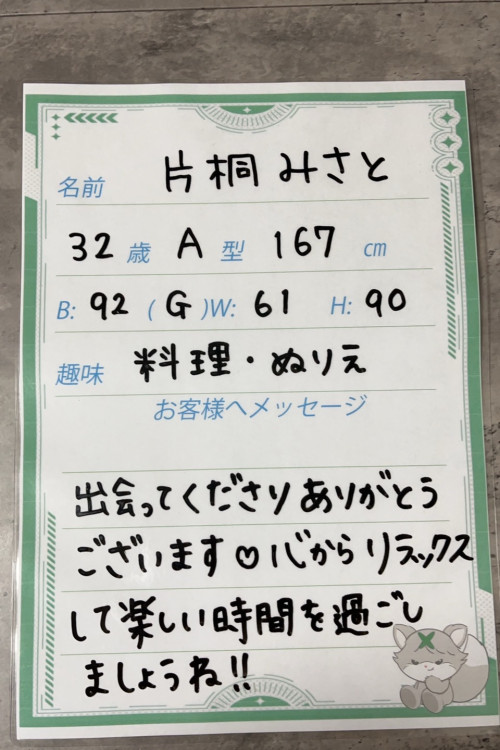 名前 片桐 みさと
32 歳 A 型 167 cm
B: 92 (G)W: 61 H: 90
趣味 料理・ぬりえ
お客様へメッセージ
出会ってくださりありがとう
ございます♡心からリラックス
して楽しい時間を過ごし
ましょうね!!